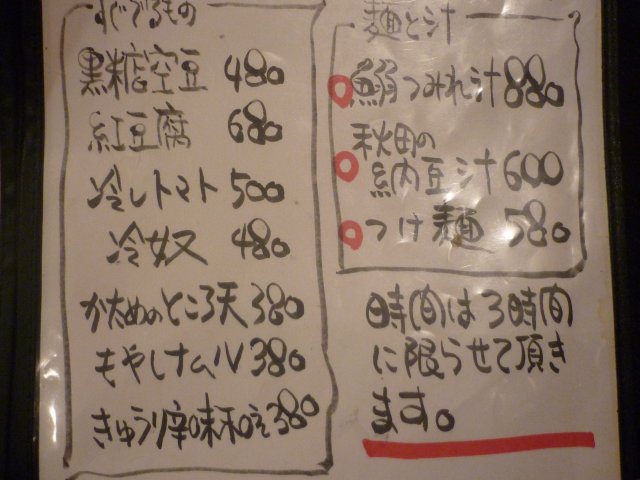 すぐでるもの
黒糖空豆 480
紅豆腐 680
冷しトマト 500
冷奴 480
かためのところ天 380
もやしナムル 380
きゅうり辛味和え 380
麺と汁
鰯つみれ汁 880
秋田の
納豆汁 600
つけ麺 580
時間は3時間
に限らせて頂き
ます。